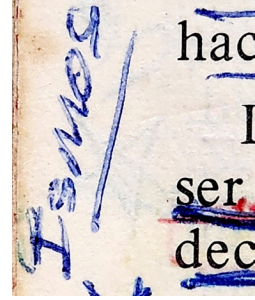 Ismos
hac
I
ser
dec